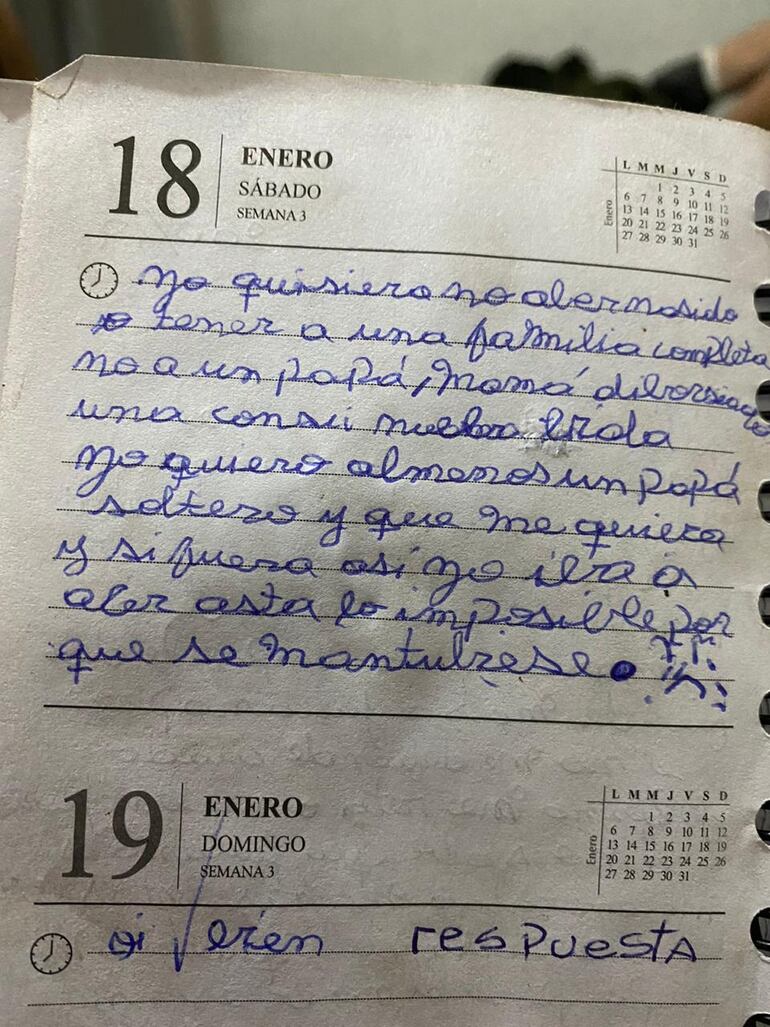 18 ENERO
SÁBADO
SEMANA 3
Enero
L M M J V S D
1 2 3 4 5
6 7 8 9 10 11 12
13 14 15 16 17 18 19
20 21 22 23 24 25 26
27 28 29 30 31
yo quisiera no aber nasido
o tener a una familia completa
no a un papá, mamá diborsiado
una con su nueba vida
yo quiero almenos un papá
soltero y que me quiera
y si fuera asi yo iva a
aber asta lo imposible por
que se mantubiese
19 ENERO
DOMINGO
SEMANA 3
Enero
L M M J V S D
1 2 3 4 5
6 7 8 9 10 11 12
13 14 15 16 17 18 19
20 21 22 23 24 25 26
27 28 29 30 31
respuesta